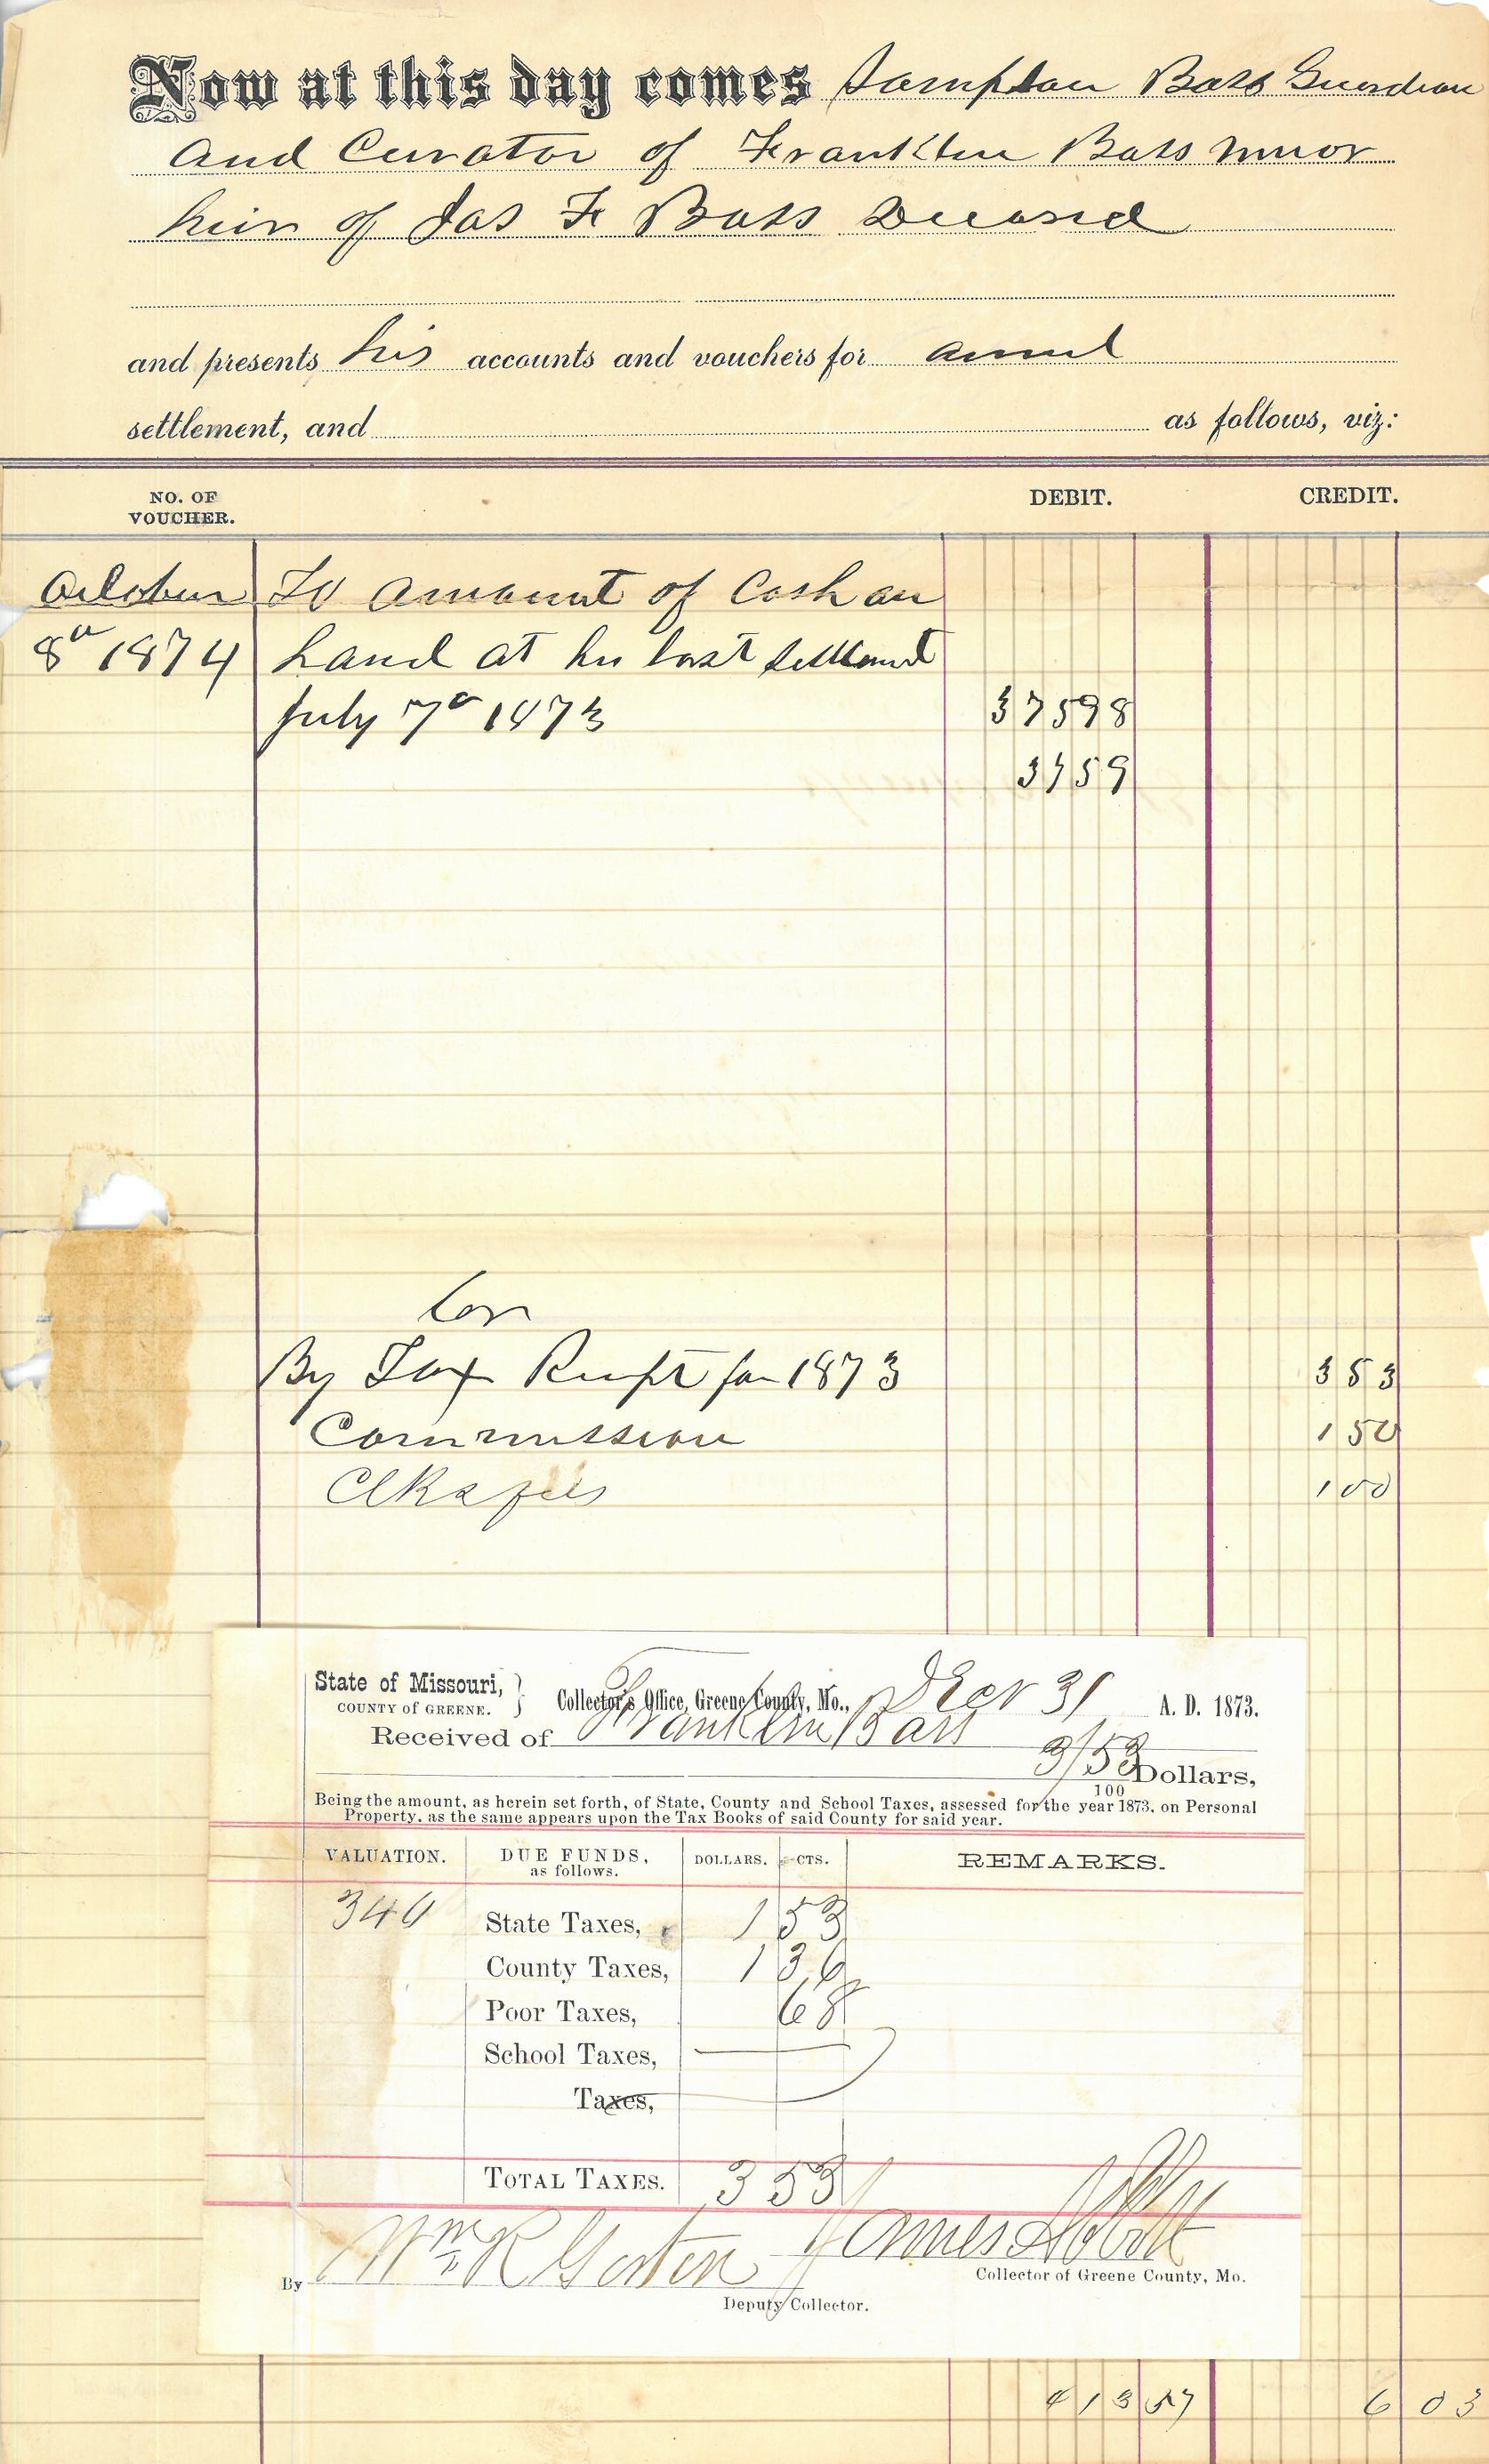 Now at this day comes Sampson Bass Guerdian
and Curator of Franklin Bass minor
heir of Jas F Bass Deceased
and presents his accounts and vouchers for annul
settlement, and as follows, viz:
NO. OF VOUCHER. DEBIT. CREDIT.
October To amount of Cash on
8th 1874 hand at his last settlement
July 7th 1873 37598
3759
Cr
By Tax Recpt for 1873 353
Commission 150
Clks fees 100
State of Missouri, COUNTY of GREENE. } Collector's Office, Greene County, Mo., Decr 31 A. D. 1873.
Received of Franklin Bass
3/53 100 Dollars,
Being the amount, as herein set forth, of State, County and School Taxes, assessed for the year 1873, on Personal
Property, as the same appears upon the Tax Books of said County for said year.
VALUATION. DUE FUNDS, as follows. DOLLARS. CTS. REMARKS.
340 State Taxes, 1 53
County Taxes, 1 36
Poor Taxes, 68
School Taxes,
Taxes,
TOTAL TAXES. 3 53
James Abbott
By Wm R Gorton
Collector of Greene County, Mo.
Deputy Collector.
413 57 6 03